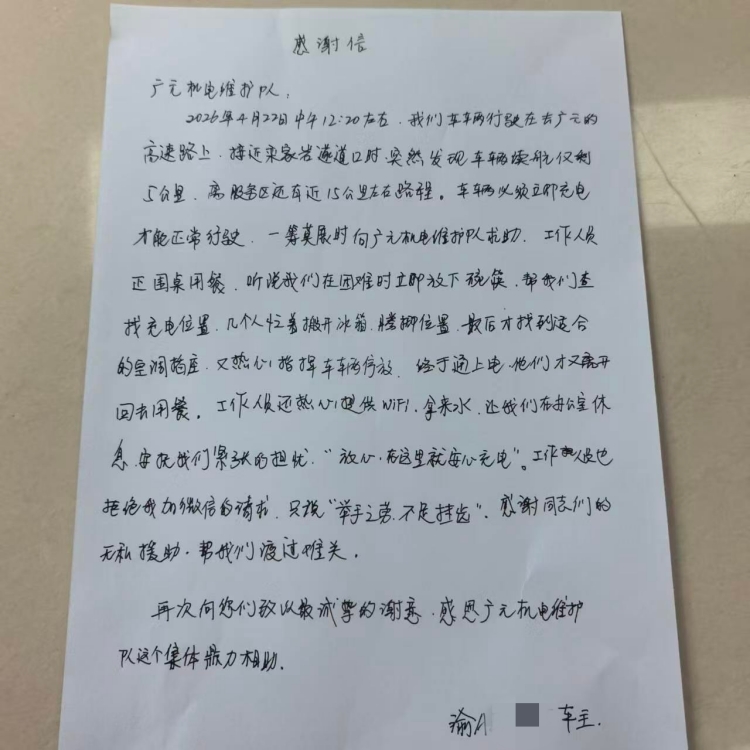 感谢信
广元机电维护队，
2026年4月22日中午12:20左右，我们车辆行驶在去广元的
高速路上，接近宋家岩遂道口时，突然发现车辆续航仅剩
5公里，离服务区还有近15公里左右路程。车辆必须立即充电
才能正常行驶，一筹莫展时向广元机电维护队求助，工作人员
正围桌用餐，听说我们在困难时立即放下碗筷，帮我们查
找充电位置，几个人忙着搬开冰箱，腾挪位置，最后才找到适合
的空调插座，又热心指挥车辆停放，终于通上电，他们才又离开
回去用餐。工作人员还热心提供WiFi，拿来水，让我们在办公室休
息，安抚我们紧张的担忧，“放心，在这里就安心充电”。工作人员也
拒绝我加微信的请求，只说“举手之劳，不足挂齿”、感谢同志们的
无私援助，帮我们渡过难关。
再次向你们致以最诚挚的谢意，感恩广元机电维护
队这个集体鼎力相助。
渝A 车主.